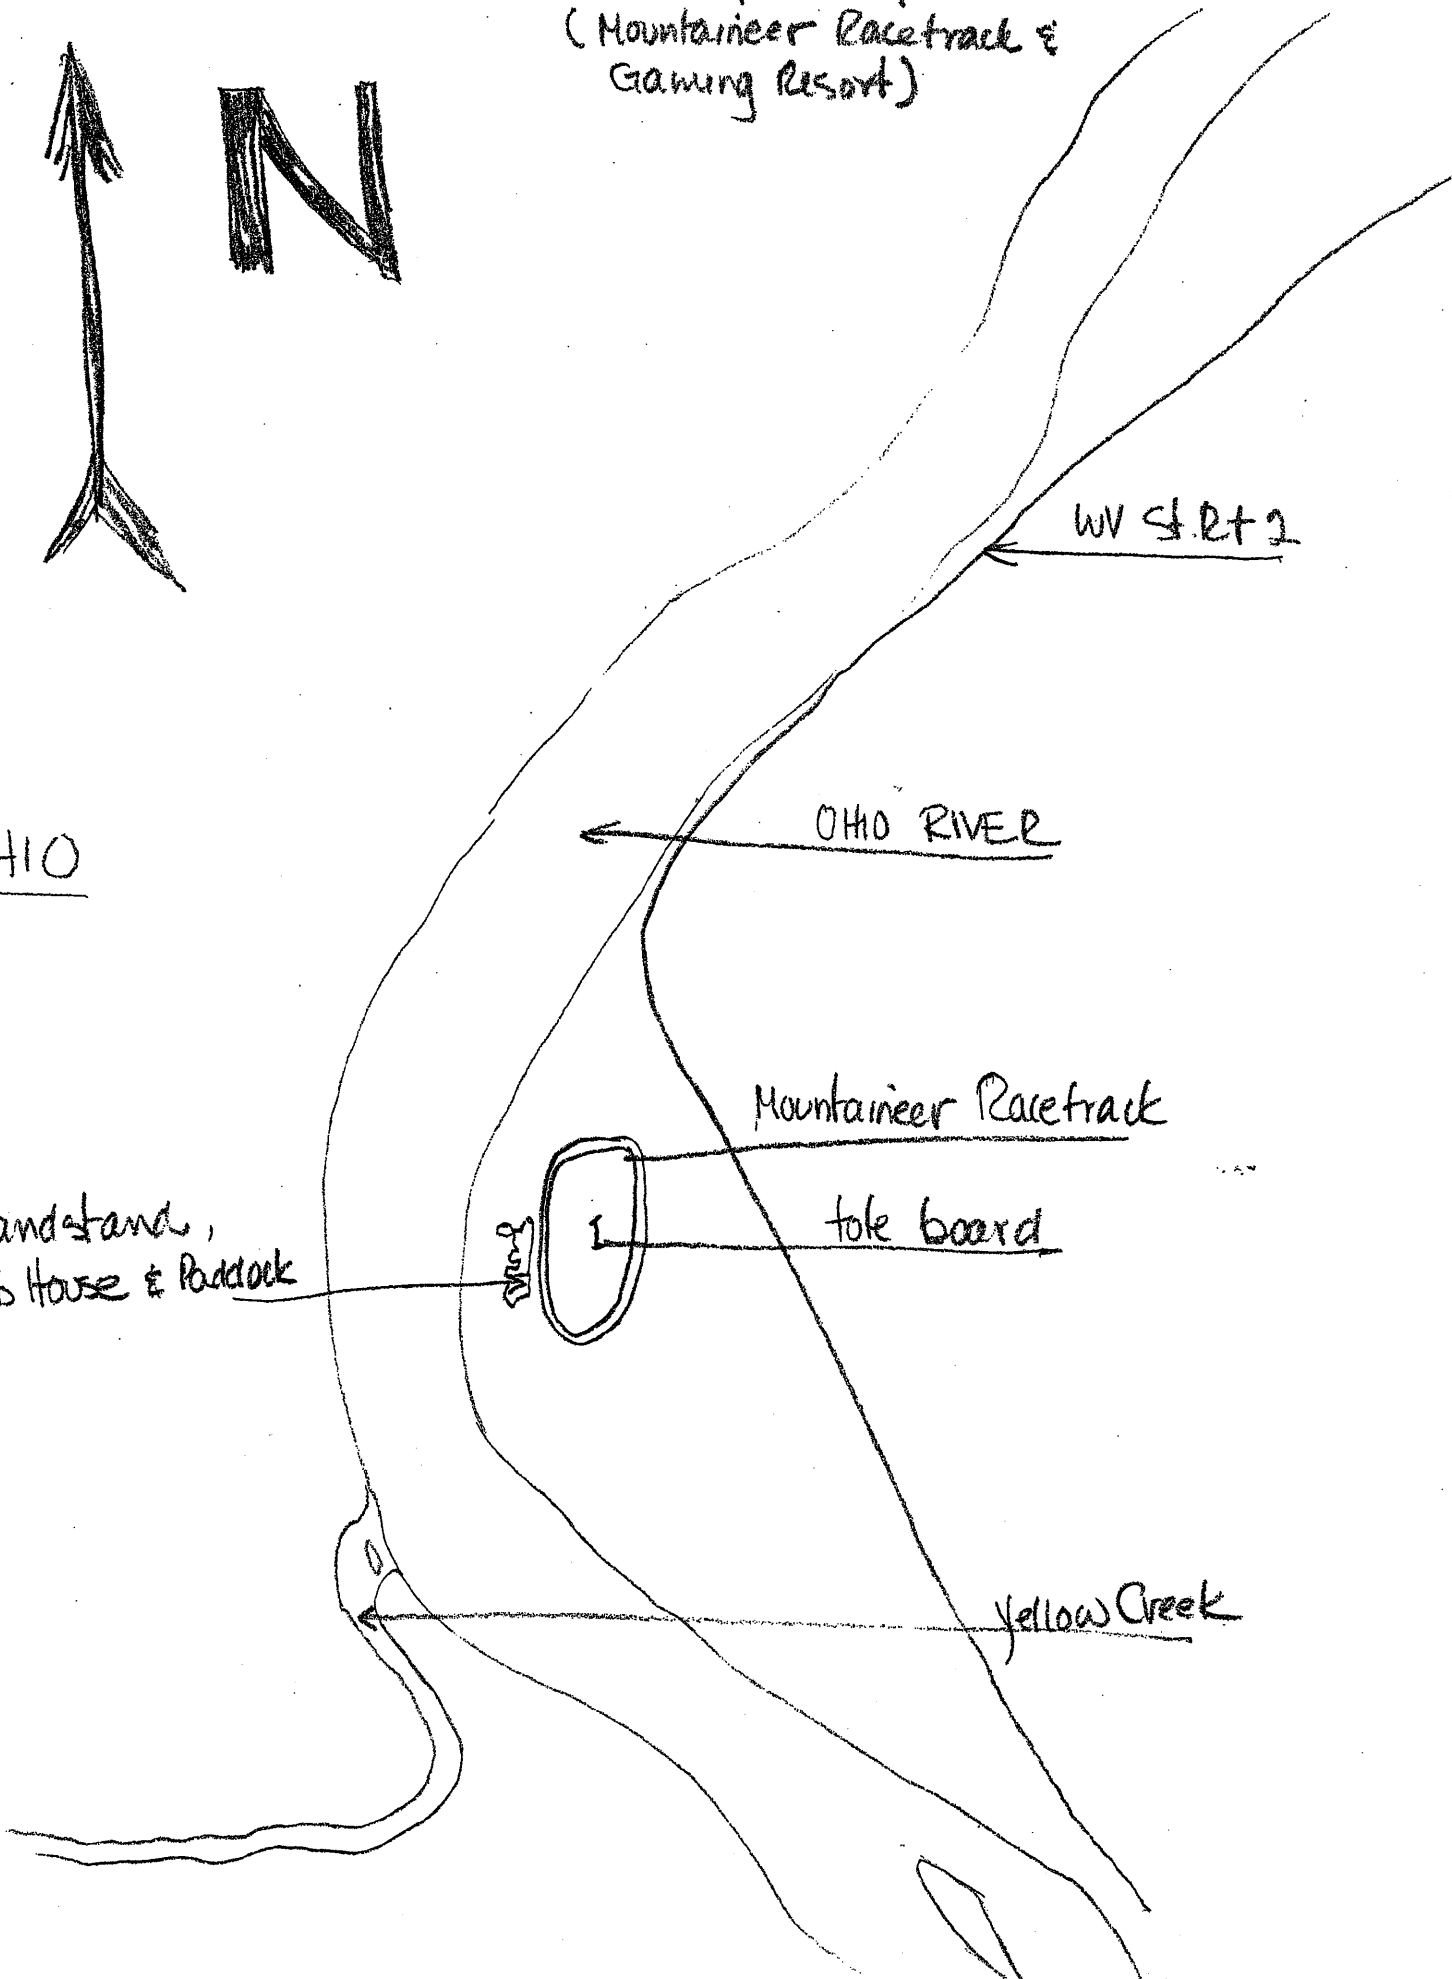 (Mountaineer Racetrack &
Gaming Resort)
N
WV St. Rt 2
OHIO RIVER
HIO
Mountaineer Racetrack
andstand,
tote board
s House & Paddock
Yellow Creek